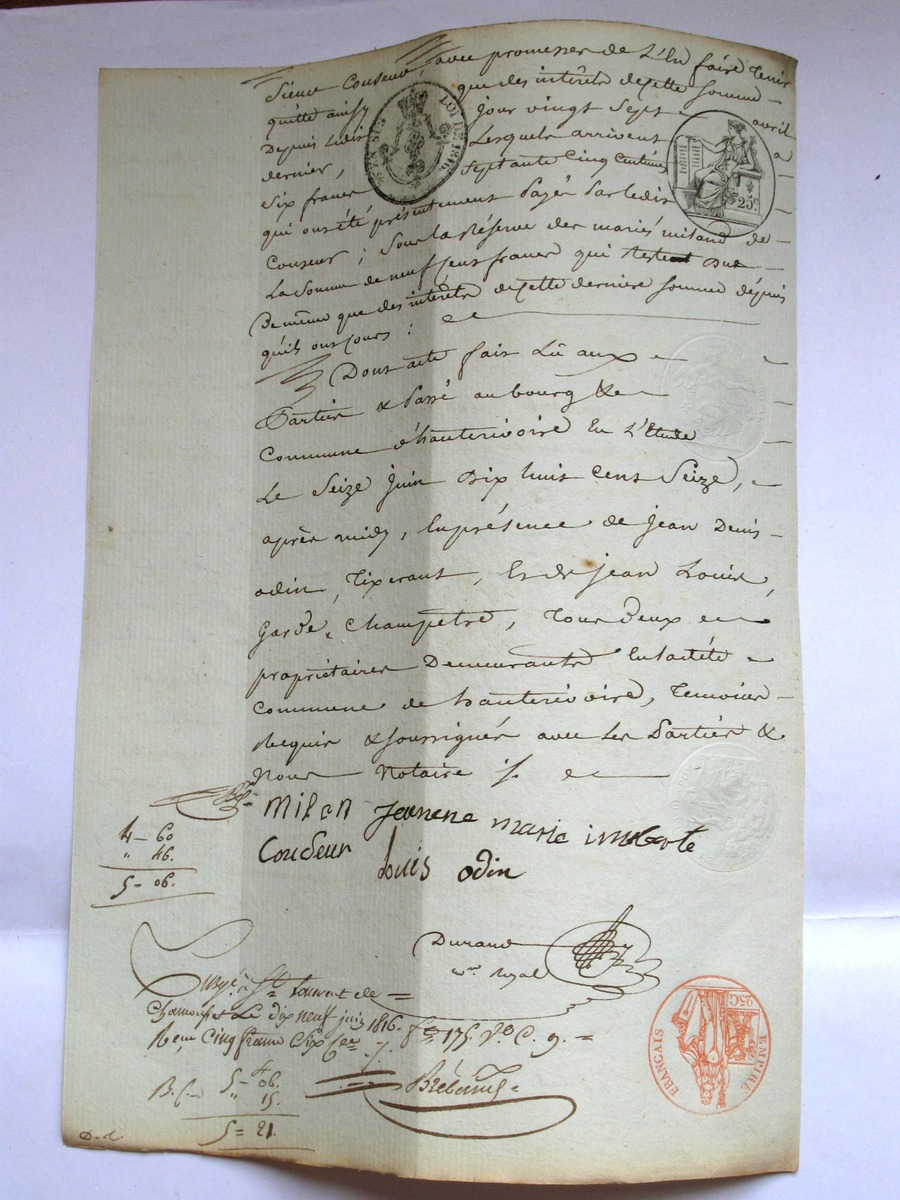 Sieur Couseur, avec promesse de l'en faire tenir
quitte ainsy que des intérêts de cette somme
Depuis ledit jour vingt sept avril
dernier, Lesquels arrivent a
six francs Septante Cinq Centimes
qui ont été présentement Payés Par ledit
Couseur; sous la Réserve des mariés miland de
La somme de neuf cens francs qui Restent Due
De même que des intérêts de cette dernière somme depuis
qu'ils ont cours :
Dont acte fait Lû aux
Parties & Passé au bourg &
Commune d'hauterivoire En L'Etude
Le Seize juin Dix huit Cent Seize,
après midy, En présence de jean Denis
odin, Tixerant, Et de jean Louis,
Garde Champetre, Tous Deux
propriétaires Demeurants En laditte
Commune de hauterivoire, Temoins
Requis & soussignés avec les Parties &
Nous Notaire
milan jeanene marie imberte
Couseur Louis odin
4 - 60
" 46.
5 - 06.
Durand
Nre Royal
Enregé à St Laurent de
Chamousset Le dix neuf juin 1816. fo 175. Vo C. 9.
Reçu Cinq francs Six Ces
B.C. 5 - 06.
" 15
5 = 21
D. d.
TIMB. SUP.
LOI DE 1816
25c
EMPIRE FRANÇAIS
25C